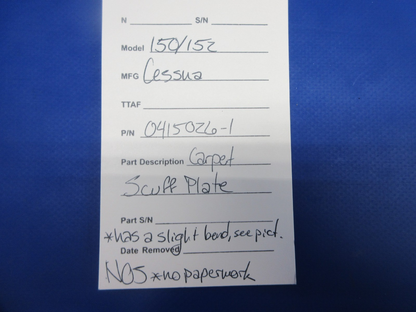 N S/N
Model 150/152
MFG Cessna
TTAF
P/N 0415026-1
Part Description Carpet
Scuff Plate
Part S/N
*has a slight bend, see pict.
Date Removed
NOS *no paperwork